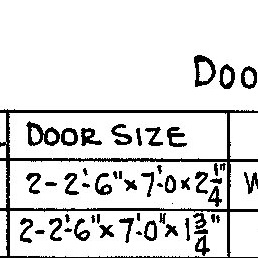 Doo
DOOR SIZE
2-2'-6"x7'-0x2 1/4"
2-2'-6"x7'-0"x1 3/4"